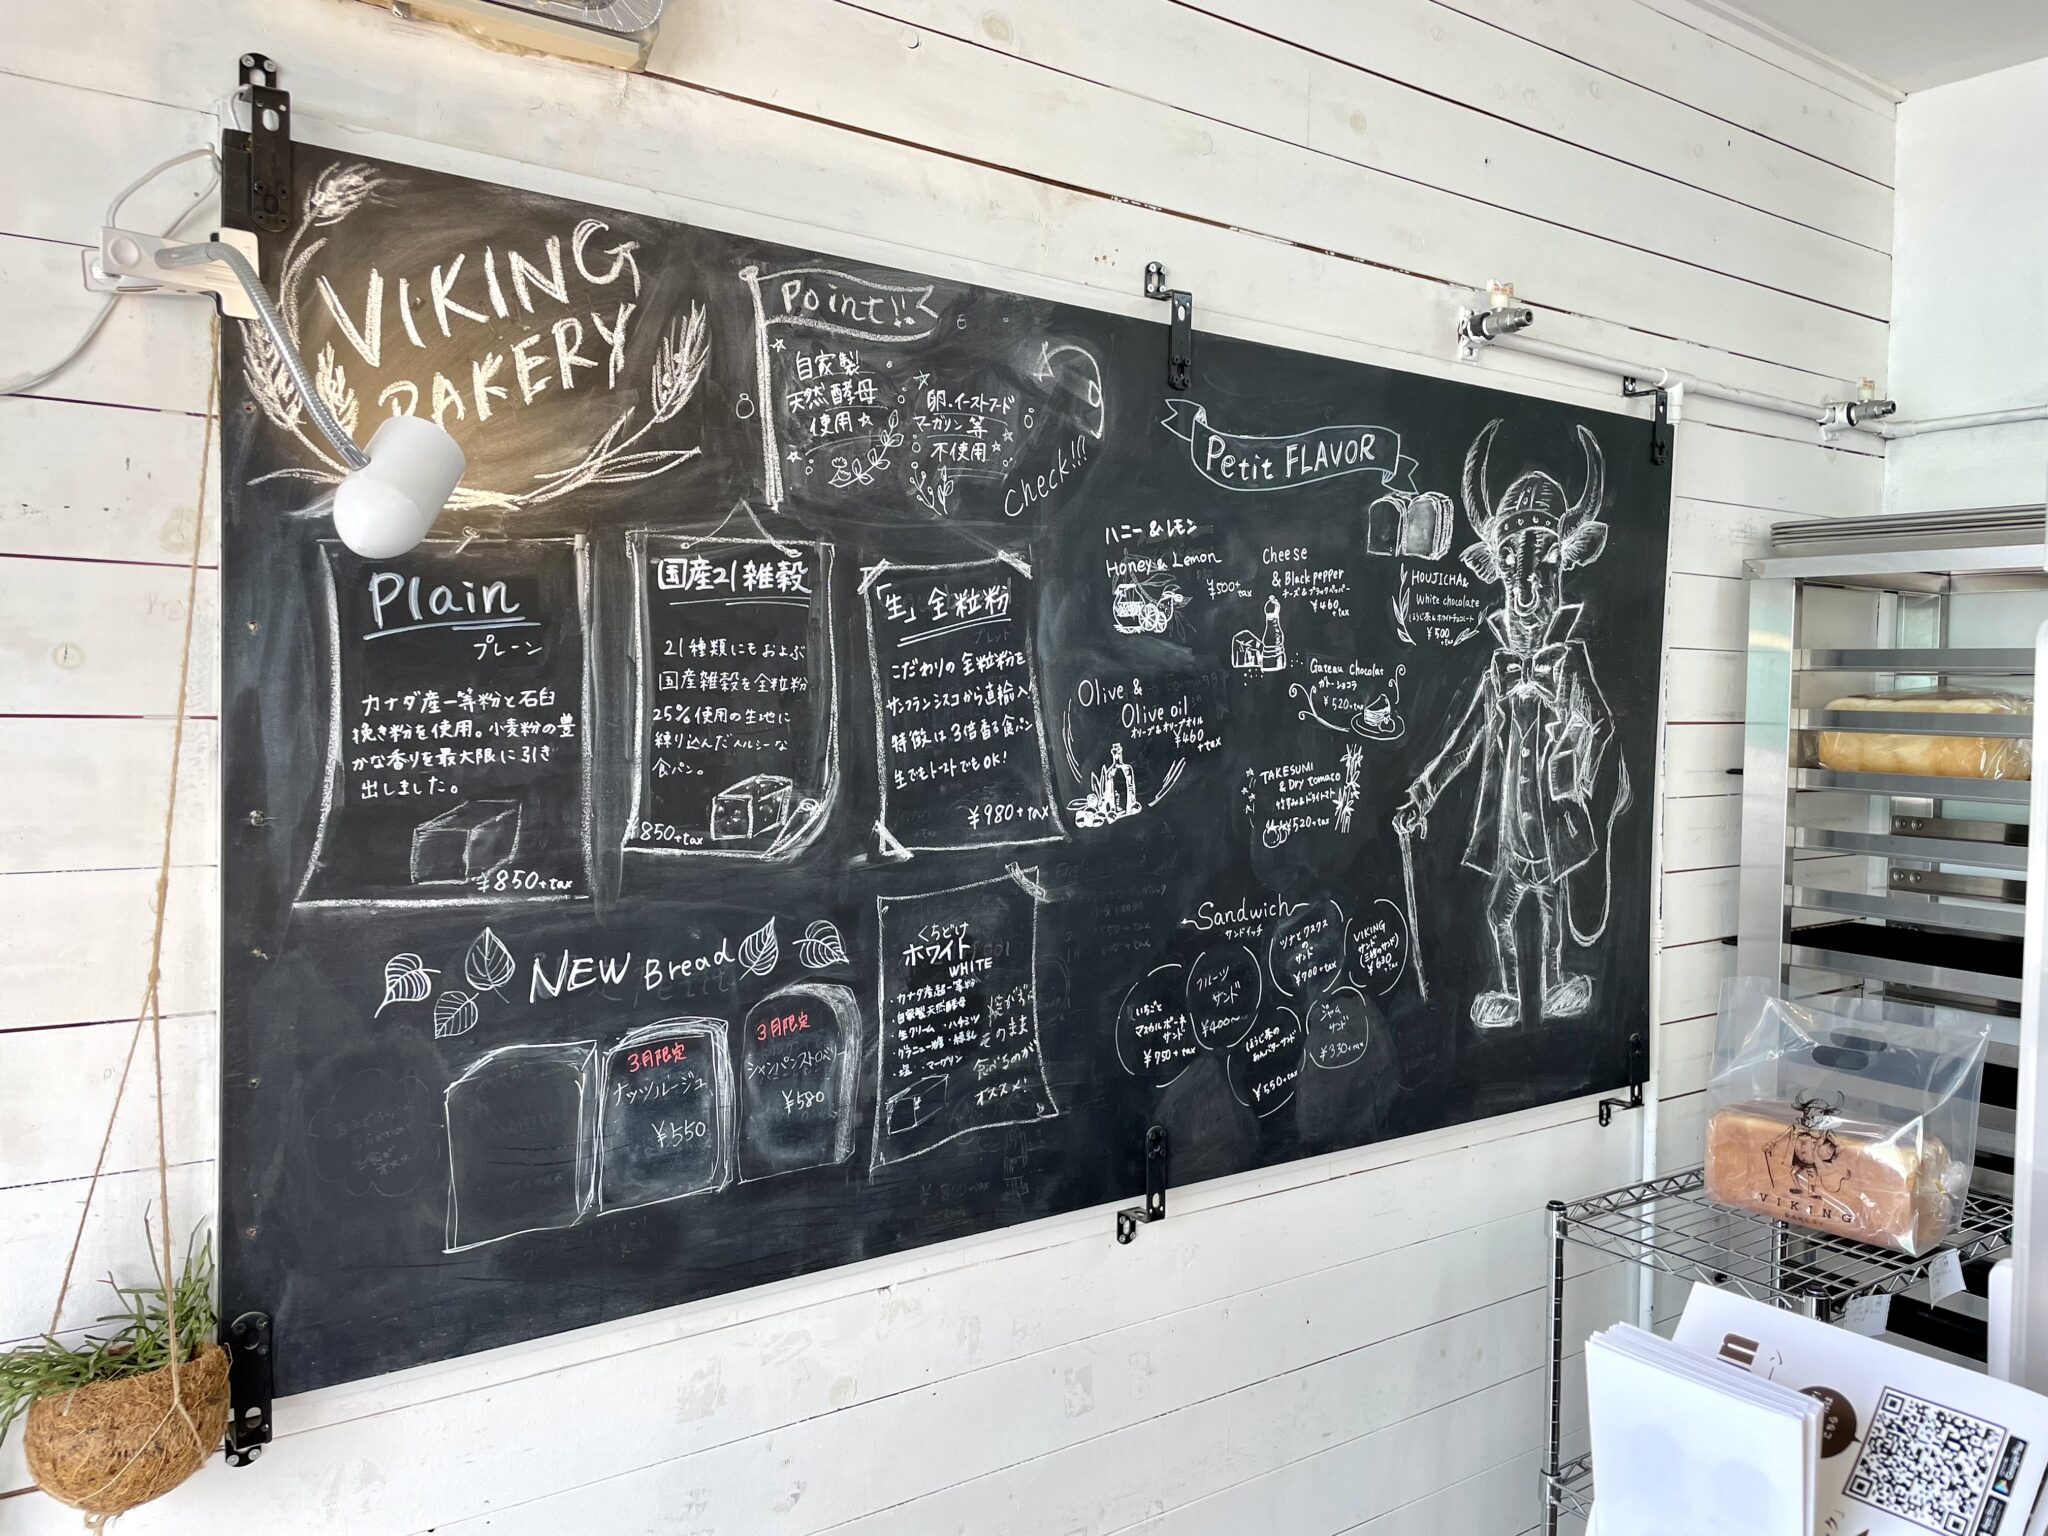 VIKING
BAKERY
Point!!
自家製
天然酵母
使用☆
卵.イーストフード
マーガリン等
不使用☆
Check!!!
Plain
プレーン
カナダ産一等粉と石臼
挽き粉を使用。小麦粉の豊
かな香りを最大限に引き
出しました。
¥850+tax
国産21雑穀
21種類にもおよぶ
国産雑穀を全粒粉
25%使用の生地に
練り込んだヘルシーな
食パン。
¥850+tax
「生」全粒粉
ブレッド
こだわりの全粒粉を
サンフランシスコから直輸入
特徴は3倍香る食パン
生でもトーストでもOK!
¥980+tax
Petit FLAVOR
ハニー&レモン
Honey & Lemon
¥500+tax
Cheese
& Black pepper
チーズ&ブラックペッパー
¥460
+tax
HOUJICHA&
White chocolate
ほうじ茶&ホワイトチョコレート
¥500
+tax
Olive &
Olive oil
オリーブ&オリーブオイル
¥460
+tax
Gateau chocolat
ガトーショコラ
¥520+tax
TAKESUMI
& Dry tomato
竹すみ&ドライトマト
¥520+tax
NEW Bread
3月限定
ナッツルージュ
¥550
3月限定
シャンパンストロベリー
¥580
くちどけ
ホワイト
WHITE
・カナダ産超一等粉
・自家製天然酵母
・生クリーム ・ハチミツ
・グラニュー糖 ・練乳
・塩 ・マーガリン
焼かず
そのまま
食べるのが
オススメ!
Sandwich
サンドイッチ
いちごと
マスカルポーネ
サンド
¥750+tax
フルーツ
サンド
¥400〜
ツナと
の
サンド
¥700+tax
VIKING
サンド
¥630
+tax
ほうじ茶の
あんバターサンド
¥550+tax
ジャム
サンド
¥330+tax
VIKING
BAKERY